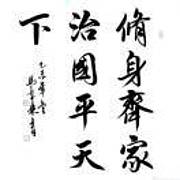 脩身齊家
治國平天
下